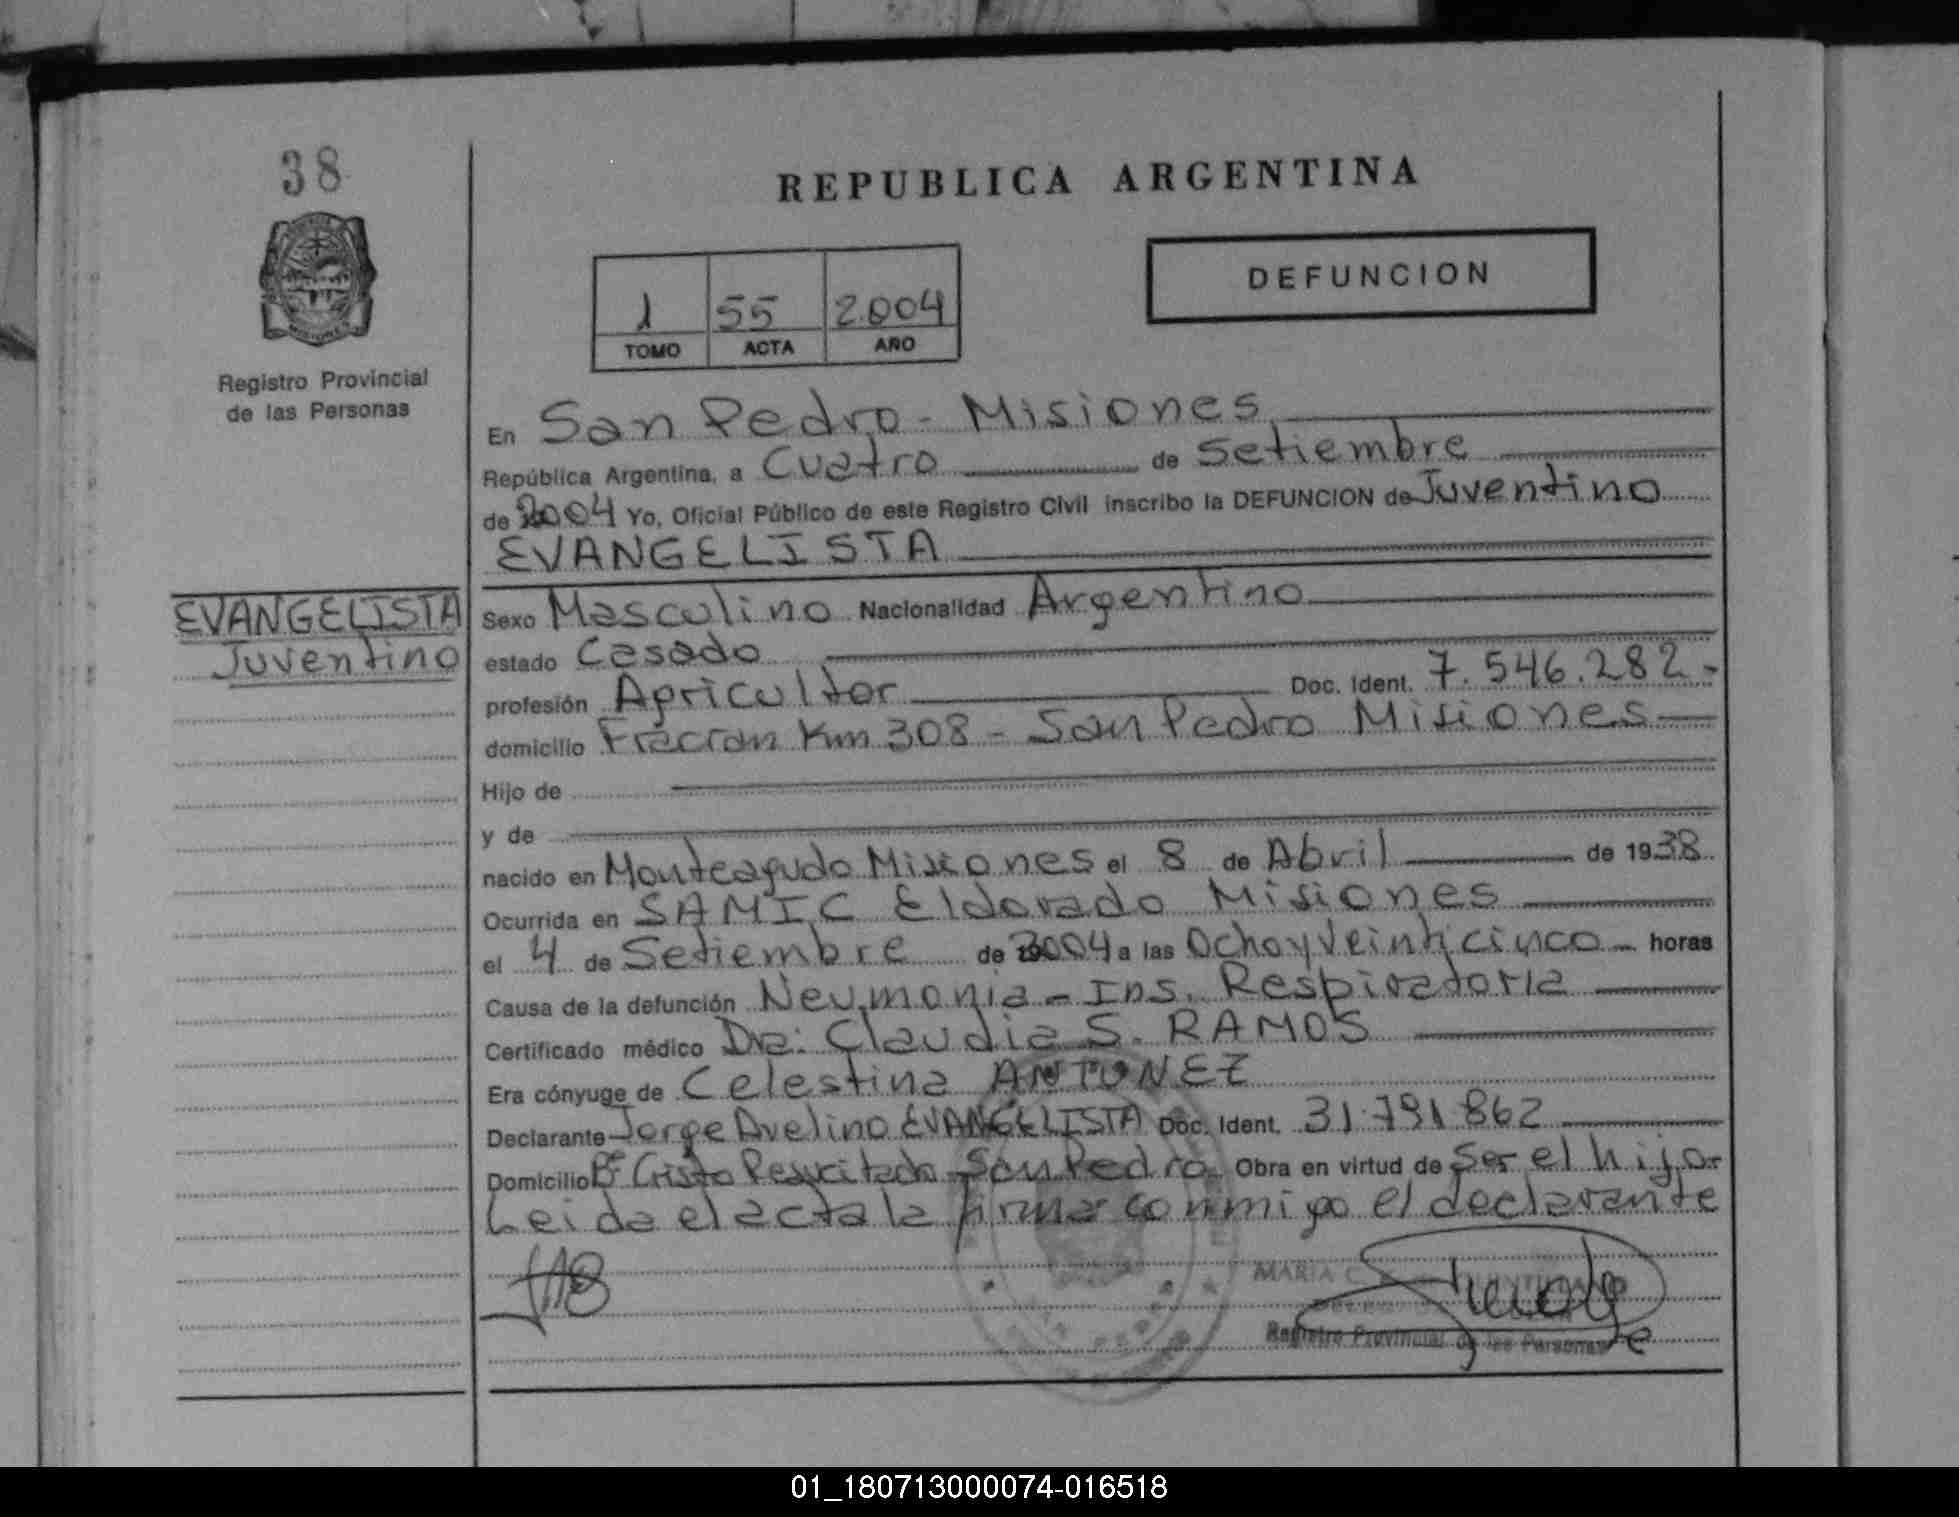 38
REPUBLICA ARGENTINA
DEFUNCION
1 55 2004
TOMO ACTA AÑO
Registro Provincial
de las Personas
En San Pedro - Misiones
República Argentina, a Cuatro de Setiembre
de 2004 Yo, Oficial Público de este Registro Civil inscribo la DEFUNCION de Juventino
EVANGELISTA
EVANGELISTA
Juventino
Sexo Masculino Nacionalidad Argentino
estado Casado
profesión Agricultor Doc. Ident. 7.546.282.-
domicilio Fracran Km 308 - San Pedro Misiones
Hijo de
y de
nacido en Monteagudo Misiones el 8 de Abril de 1938
Ocurrida en SAMIC Eldorado Misiones
el 4 de Setiembre de 2004 a las Ocho y Veinticinco horas
Causa de la defunción Neumonia - Ins. Respiratoria
Certificado médico Dra: Claudia S. RAMOS
Era cónyuge de Celestina ANTUNEZ
Declarante Jorge Avelino EVANGELISTA Doc. Ident. 31.791.862
Domicilio Bº Cristo Resucitado - San Pedro. Obra en virtud de Ser el hijo.-
Leida el acta la firma conmigo el declarante
MARIA C.
Registro Provincial de las Personas
01_180713000074-016518